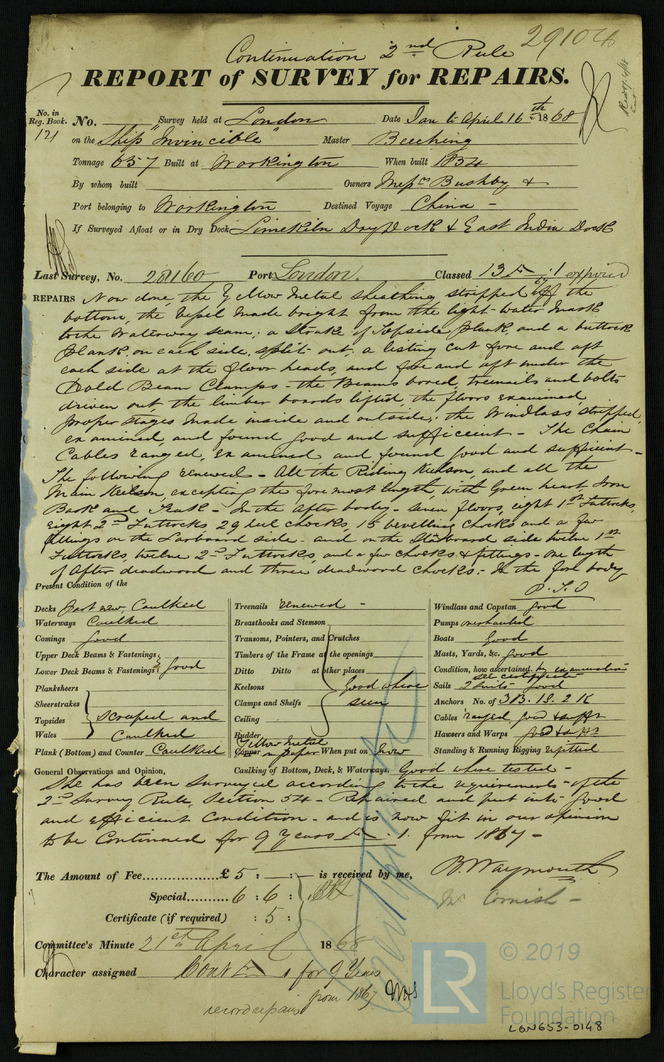 Continuation 2nd Rule 29104
REPORT of SURVEY for REPAIRS.
No. in Reg. Book. No. Survey held at London Date Jan to April 16th 1868
121 on the Ship "Invincible" Master Beeching
Tonnage 657 Built at Workington When built 1854
By whom built Owners Messrs Bushby &
Port belonging to Workington Destined Voyage China -
If Surveyed Afloat or in Dry Dock Limekiln Dry Dock & East India Dock
Last Survey, No. 28160 Port London. Classed 13 1 expired
REPAIRS Now done, the Yellow Metal sheathing stripped off the
bottom, the Vessel made bright from the light-water mark
to the Waterway seam; a Strake of Topside Plank and a buttock
Plank, on each side, split out, a listing cut fore and aft
each side at the floor heads, and fore and aft under the
Hold Beam Clamps - the Beams bored, treenails and bolts
driven out the limber boards lifted, the floors examined,
proper stages made inside and outside, the Windlass stripped,
examined, and found good and sufficient - The Chain
Cables ranged, examined and found good and sufficient -
The following renewed - All the Riding Keelson and all the
Main Keelson, excepting the fore most length, with Green heart Iron
Bark and Teak - In the After body - seven floors, eight 1st Futtocks,
eight 2nd Futtocks 29 heel chocks, 15 bevelling Chocks and a few
fillings on the Larboard side - and on the Starboard side twelve 1st
Futtocks, twelve 2nd Futtocks, and a few chocks & fittings - one length
of After deadwood and three deadwood chocks: - In the fore body
P.T.O
Present Condition of the
Decks Part new, Caulked
Waterways Caulked
Comings Good
Upper Deck Beams & Fastenings
Lower Deck Beams & Fastenings } Good
Planksheers
Sheerstrakes
Topsides
Wales
Scraped and Caulked
Plank (Bottom) and Counter Caulked
Treenails renewed -
Breasthooks and Stemson
Transoms, Pointers, and Crutches
Timbers of the Frame at the openings
Ditto Ditto at other places
Keelsons
Clamps and Shelfs
Ceiling
Rudder
Good where seen
Yellow Metal
Copper on paper When put on Now
Caulking of Bottom, Deck, & Waterways. Good where tested -
Windlass and Capstan good
Pumps
Boats Good
Masts, Yards, &c. Good
Condition, how ascertained by examination
Sails 2 Suits good
Anchors No. of 3B. 1S. 2K
Cables ranged, good & sufft
Hawsers and Warps good & sufft
Standing & Running Rigging refitted
General Observations and Opinion,
She has been surveyed according to the requirements of the
2nd Survey Rule, Section 54 - Repaired and put into good
and efficient Condition - and is now fit in our opinion
to be Continued for 9 Years 1. from 1867 -
The Amount of Fee £ 5 : - : - is received by me, B. Waymouth
Special 6 : 6 : Cornish -
Certificate (if required) : 5 :
Committee's Minute 21st April 1868
Character assigned Cont 1 for 9 Years
from 1867
record repairs
© 2019
LR
Lloyd's Register
Foundation
LGN653-0148